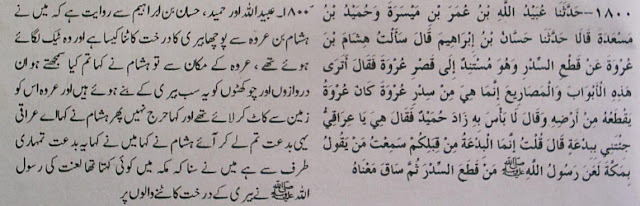 ١٨٠٠- حَدَّثَنَا عُبَيْدُ اللَّهِ بْنُ عُمَرَ بْنِ مَيْسَرَةَ وَحُمَيْدُ بْنُ
مَسْعَدَةَ قَالَا حَدَّثَنَا حَسَّانُ بْنُ إِبْرَاهِيمَ قَالَ سَأَلْتُ هِشَامَ بْنَ
عُرْوَةَ عَنْ قَطْعِ السِّدْرِ وَهُوَ مُسْتَنِدٌ إِلَى قَصْرِ عُرْوَةَ فَقَالَ أَتَرَى
هَذِهِ الْأَبْوَابَ وَالْمَصَارِيعَ إِنَّمَا هِيَ مِنْ سِدْرِ عُرْوَةَ كَانَ عُرْوَةُ
يَقْطَعُهُ مِنْ أَرْضِهِ وَقَالَ لَا بَأْسَ بِهِ زَادَ حُمَيْدٌ فَقَالَ هِيَ يَا عِرَاقِيُّ
جِئْتَنِي بِبِدْعَةٍ قَالَ قُلْتُ إِنَّمَا الْبِدْعَةُ مِنْ قِبَلِكُمْ سَمِعْتُ مَنْ يَقُولُ
بِمَكَّةَ لَعَنَ رَسُولُ اللَّهِ ﷺ مَنْ قَطَعَ السِّدْرَ ثُمَّ سَاقَ مَعْنَاهُ
١٨٠٠۔ عبید اللہ اور حمید، حسان بن ابراہیم سے روایت ہے کہ میں نے
ہشام بن عروہ سے پوچھا بیری کا درخت کاٹنا کیسا ہے اور وہ ٹیک لگائے
ہوئے تھے، عروہ کے مکان سے تو ہشام نے کہا تم کیا سمجھتے ہو ان
دروازوں اور چوکھٹوں کو یہ سب بیری کے بنے ہوئے ہیں اور عروہ اس کو
زمین سے کاٹ کر لائے تھے اور کہا حرج نہیں پھر ہشام نے کہا اے عراقی
یہی بدعت تم لے کر آئے ہشام نے کہا میں نے کہا یہ بدعت تمہاری
طرف سے ہے میں نے سنا کہ مکہ میں کوئی کہتا تھا لعنت کی رسول
اللہ ﷺ نے بیری کے درخت کاٹنے والوں پر